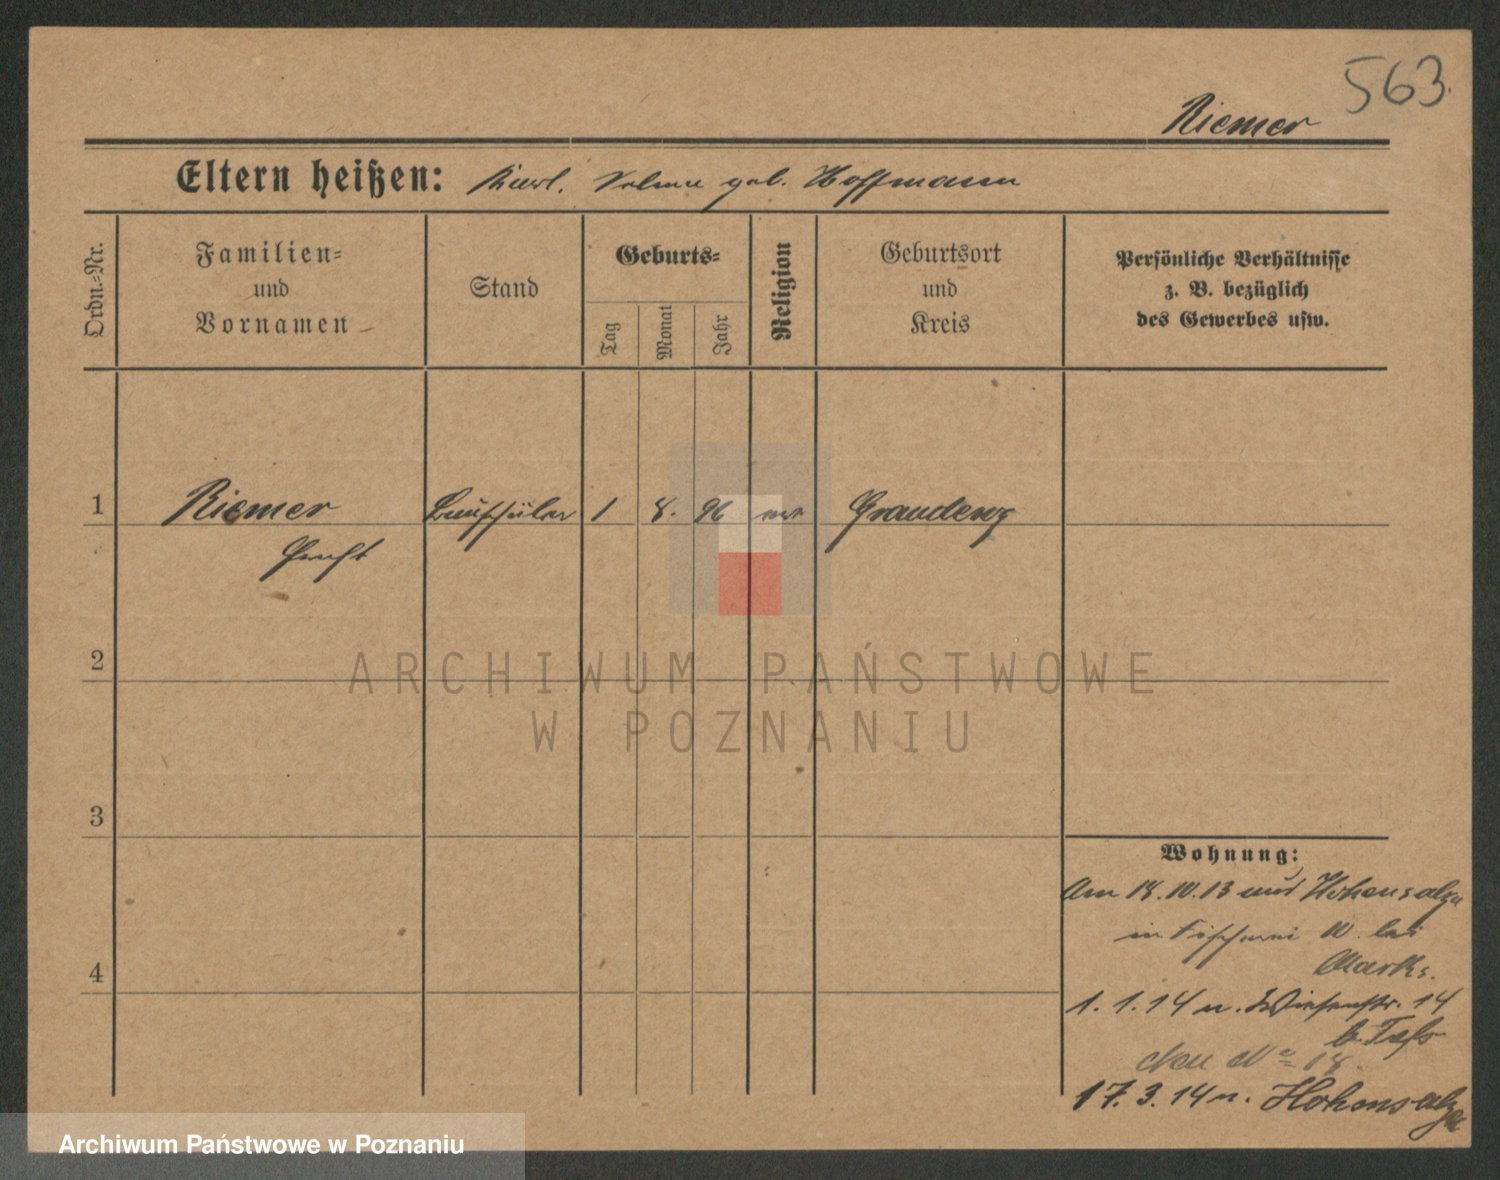 563.
Riemer
Eltern heißen: Karl. Selma geb. Hoffmann
Ordn.-Nr.
Familien-
und
Vornamen
Stand
Geburts-
Tag
Monat
Jahr
Religion
Geburtsort
und
Kreis
Persönliche Verhältnisse
z. B. bezüglich
des Gewerbes usw.
1
Riemer
Bauschüler
1
8.
96
Graudenz
2
3
4
ARCHIWUM PAŃSTWOWE
W POZNANIU
Wohnung:
Am 18.10.13 und Hohensalza
in Fischerei 10. bei
Marks.
1.1.14 n. Wiesenstr. 14
b.
Neu No 18.
17.3.14 n. Hohensalza
Archiwum Państwowe w Poznaniu